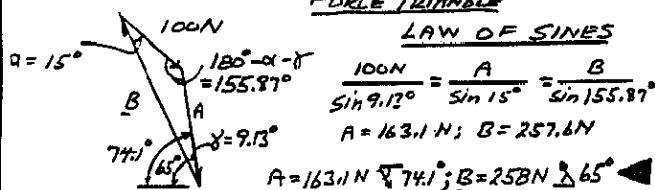 FORCE TRIANGLE
LAW OF SINES
100N
α = 15°
180°-α-γ
=155.87°
B
A
74.1°
65°
γ=9.13°
100N/sin 9.13° = A/sin 15° = B/sin 155.87°
A = 163.1 N; B = 257.6N
A = 163.1 N 74.1°; B = 258N 65°